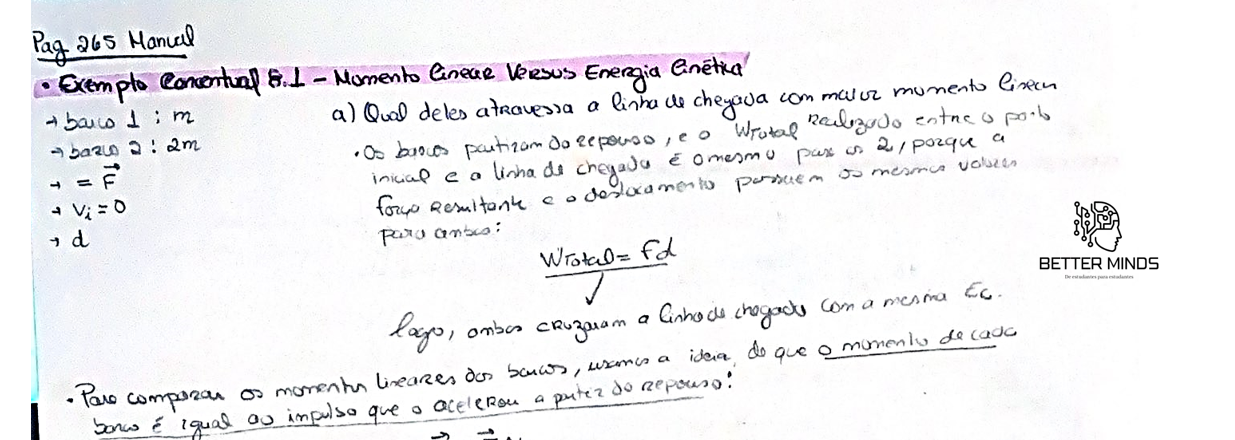 Pag 265 Manual
• Exemplo Conceitual 8.1 - Momento linear Versus Energia Cinética
→ barco 1 : m
→ barco 2 : 2m
→ = F⃗
→ Vi = 0
→ d
a) Qual deles atravessa a linha de chegada com maior momento linear
• Os barcos partiram do repouso, e o Wtotal Realizado entre o ponto
inicial e a linha de chegada é o mesmo para os 2, porque a
força Resultante e o deslocamento possuem os mesmos valores
para ambos:
Wtotal = Fd
logo, ambos cruzaram a linha de chegada com a mesma Ec.
• Para comparar os momentos lineares dos barcos, usamos a ideia de que o momento de cada
barco é igual ao impulso que o acelerou a partir do repouso:
BETTER MINDS
De estudantes para estudantes